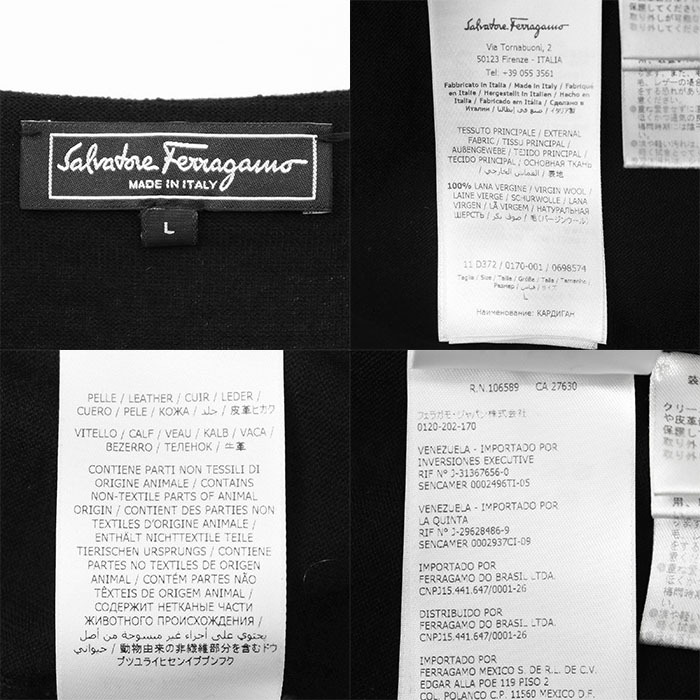 Salvatore Ferragamo
MADE IN ITALY
L
Salvatore Ferragamo
Via Tornabuoni, 2
50123 Firenze - ITALIA
Tel: +39 055 3561
Fabbricato in Italia / Made in Italy / Fabriqué
en Italie / Hergestellt in Italien / Hecho en
Italia / Fabricado em Itália / Сделано в
Италии / صنع في إيطاليا / イタリア製
TESSUTO PRINCIPALE / EXTERNAL
FABRIC / TISSU PRINCIPAL /
AUßENGEWEBE / TEJIDO PRINCIPAL /
TECIDO PRINCIPAL / ОСНОВНАЯ ТКАНЬ
/ القماش الخارجي / 表地
100% LANA VERGINE / VIRGIN WOOL /
LAINE VIERGE / SCHURWOLLE / LANA
VIRGEN / LÃ VIRGEM / НАТУРАЛЬНАЯ
ШЕРСТЬ / صوف بكر / 毛(バージンウール)
11 D372 / 0170-001 / 0698574
Taglia / Size / Taille / Größe / Talla / Tamanho /
Размер / قياس / サイズ
L
Наименование: КАРДИГАН
PELLE / LEATHER / CUIR / LEDER /
CUERO / PELE / КОЖА / جلد / 皮革ヒカク
VITELLO / CALF / VEAU / KALB / VACA /
BEZERRO / ТЕЛЕНОК / 牛革
CONTIENE PARTI NON TESSILI DI
ORIGINE ANIMALE / CONTAINS
NON-TEXTILE PARTS OF ANIMAL
ORIGIN / CONTIENT DES PARTIES NON
TEXTILES D'ORIGINE ANIMALE /
ENTHÄLT NICHTTEXTILE TEILE
TIERISCHEN URSPRUNGS / CONTIENE
PARTES NO TEXTILES DE ORIGEN
ANIMAL / CONTÉM PARTES NÃO
TÊXTEIS DE ORIGEM ANIMAL /
СОДЕРЖИТ НЕТКАНЫЕ ЧАСТИ
ЖИВОТНОГО ПРОИСХОЖДЕНИЯ /
يحتوي على أجزاء غير منسوجة من أصل
حيواني / 動物由来の非繊維部分を含むドウ
ブツユライヒセンイブブンフク
R.N. 106589 CA 27630
フェラガモ・ジャパン株式会社
0120-202-170
VENEZUELA - IMPORTADO POR
INVERSIONES EXECUTIVE
RIF Nº J-31367656-0
SENCAMER 0002496TI-05
VENEZUELA - IMPORTADO POR
LA QUINTA
RIF Nº J-29628486-9
SENCAMER 0002937CI-09
IMPORTADO POR
FERRAGAMO DO BRASIL LTDA.
CNPJ15.441.647/0001-26
DISTRIBUIDO POR
FERRAGAMO DO BRASIL LTDA.
CNPJ15.441.647/0001-26
IMPORTADO POR
FERRAGAMO MEXICO S. DE R.L. DE C.V.
EDGAR ALLA POE 119 PISO 2
COL. POLANCO C.P. 11560 MEXICO D.F.